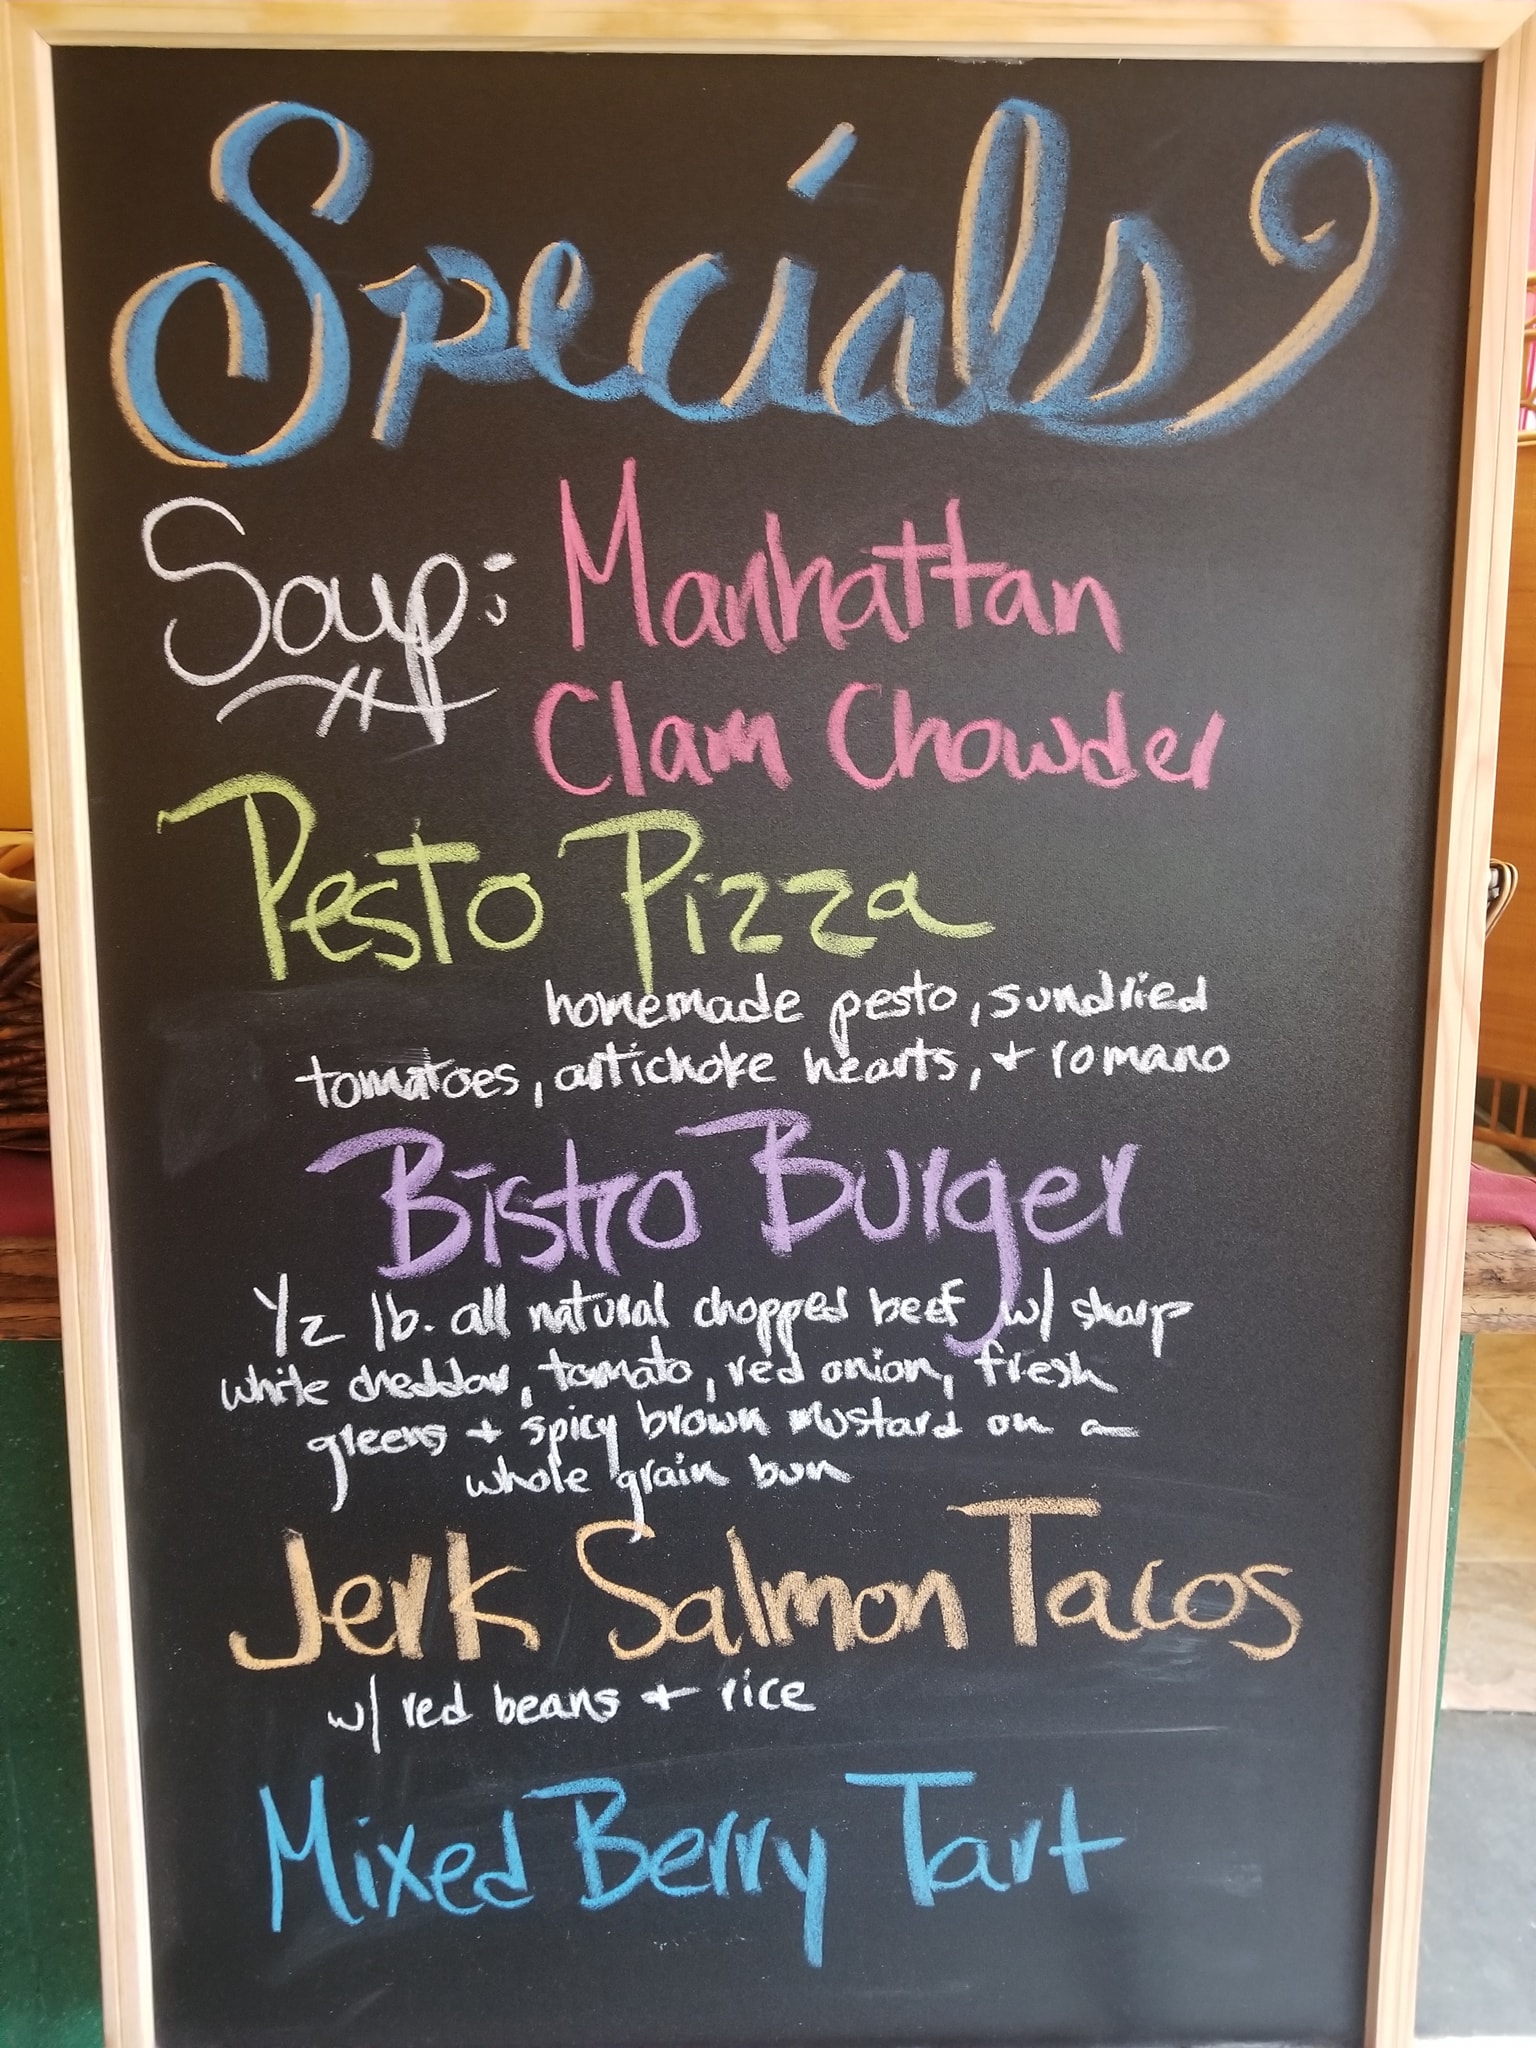 Specials
Soup: Manhattan
Clam Chowder
Pesto Pizza
homemade pesto, sundried
tomatoes, artichoke hearts, + romano
Bistro Burger
1/2 lb. all natural chopped beef w/ sharp
white cheddar, tomato, red onion, fresh
greens + spicy brown mustard on a
whole grain bun
Jerk Salmon Tacos
w/ red beans + rice
Mixed Berry Tart